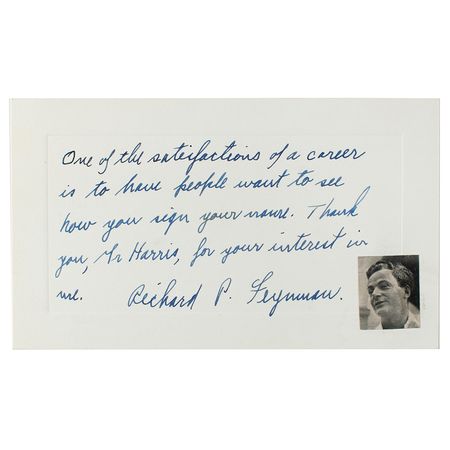 One of the satisfactions of a career
is to have people want to see
how you sign your name. Thank
you, Mr Harris, for your interest in
me. Richard P. Feynman.